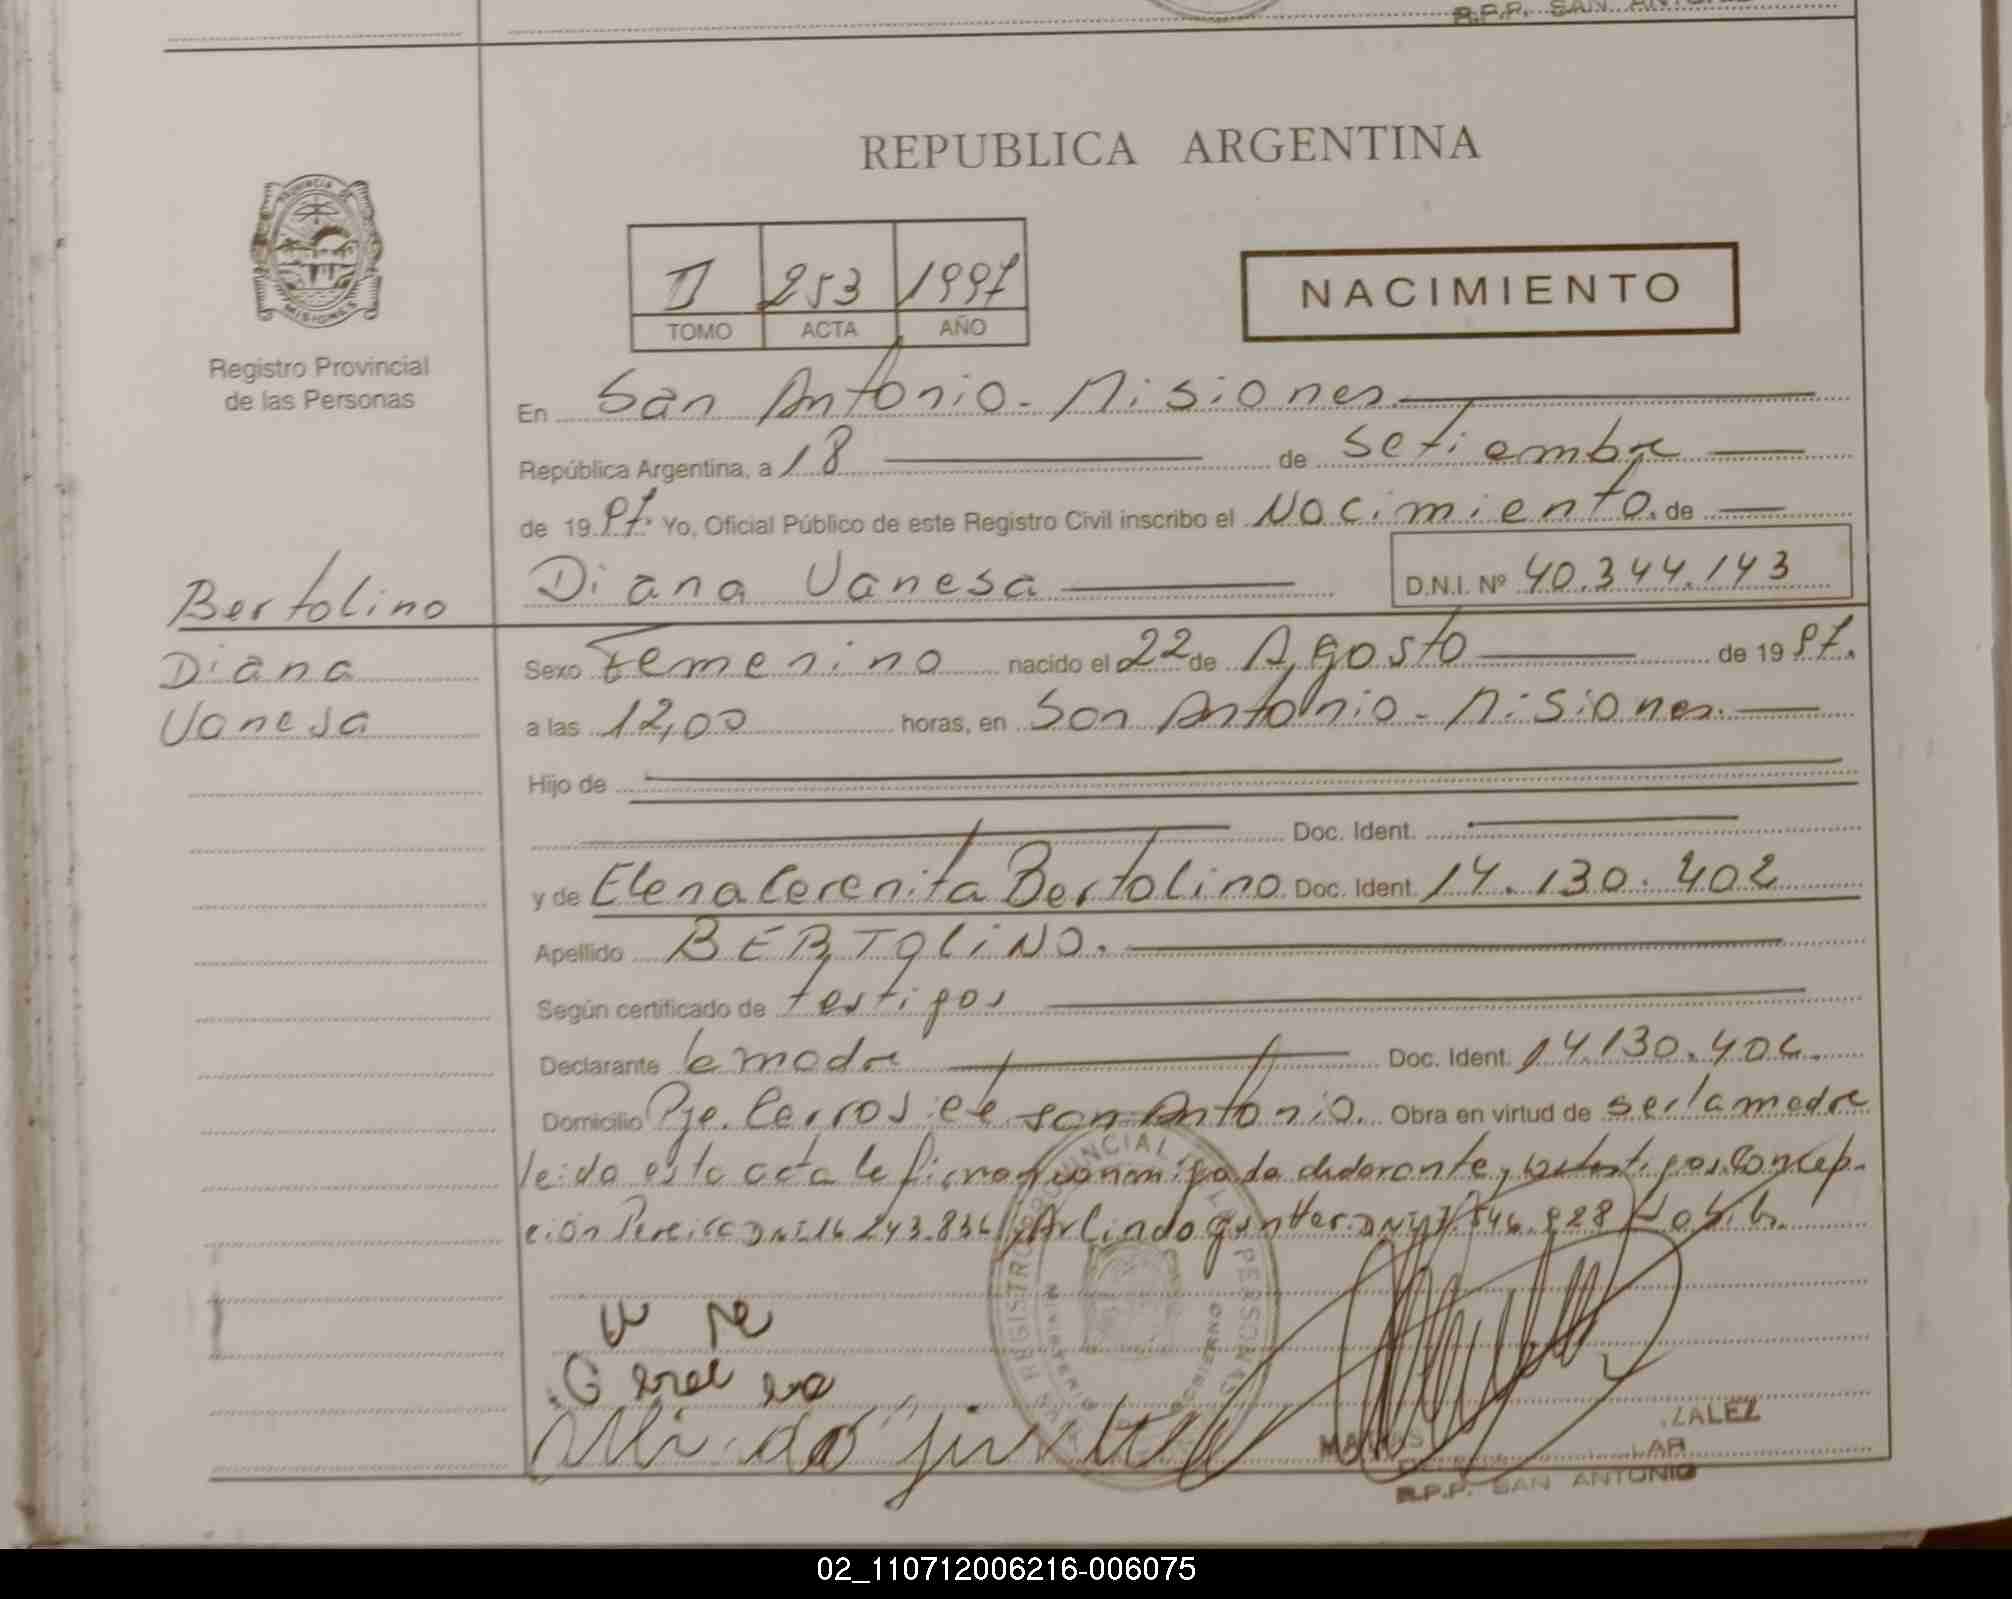 R.P.P. SAN ANTONIO
REPUBLICA ARGENTINA
PROVINCIA DE
MISIONES
Registro Provincial
de las Personas
II 253 1997
TOMO ACTA AÑO
NACIMIENTO
En San Antonio - Misiones
República Argentina, a 18 de Setiembre
de 19 97. Yo, Oficial Público de este Registro Civil inscribo el Nacimiento. de
Bertolino Diana Vanesa D.N.I. Nº 40.344.143
Diana Sexo Femenino nacido el 22 de Agosto de 19 97.
Vanesa a las 12,00 horas, en San Antonio - Misiones.
Hijo de
Doc. Ident.
y de Elena Cerenita Bertolino Doc. Ident. 14.130.402
Apellido BERTOLINO.
Según certificado de testigos
Declarante la madre Doc. Ident. 14.130.402.
Domicilio Pje. Cerros de San Antonio. Obra en virtud de ser la madre
leida esta acta la firman conmigo la declarante, los testigos Concep-
ción Pereira DNI 16 243.836 y Arlindo Ginter DNI
REGISTRO PROVINCIAL DE LAS PERSONAS
MINISTERIO DE GOBIERNO
ZALEZ
R.P.P. SAN ANTONIO
02_110712006216-006075